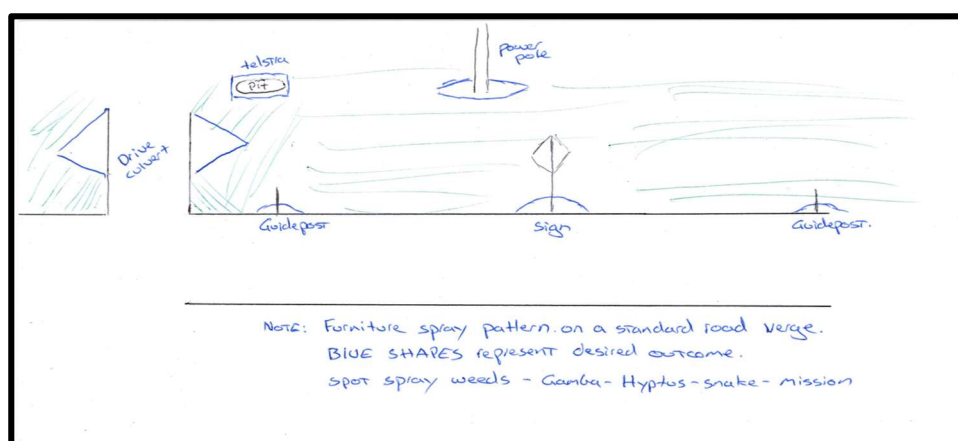 telstra
pit
power
pole
Drive
culvert
Guidepost
Sign
Guidepost.
NOTE: Furniture spray pattern on a standard road verge.
BLUE SHAPES represent desired outcome.
spot spray weeds - Gamba - Hyptus - snake - mission